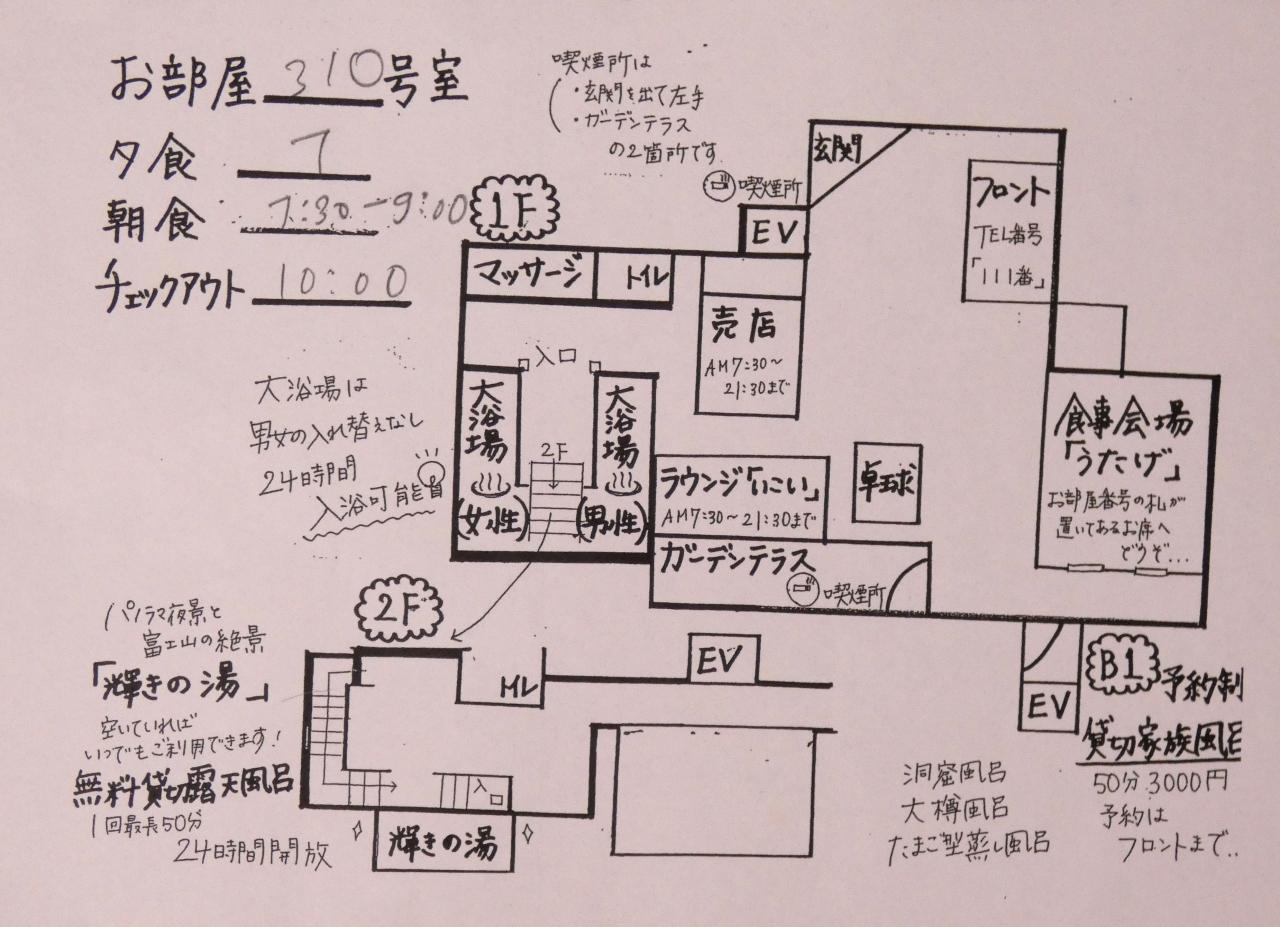 お部屋 310 号室
夕食 7
朝食 7:30-9:00
チェックアウト 10:00
喫煙所は
・玄関を出て左手
・ガーデンテラス
の2箇所です
喫煙所
玄関
フロント
TEL番号
「111番」
1F
EV
マッサージ
トイレ
売店
AM7:30～
21:30まで
入口
大浴場
(女性)
2F
大浴場
(男性)
大浴場は
男女の入れ替えなし
24時間
入浴可能
ラウンジ「いこい」
AM7:30～21:30まで
卓球
食事会場
「うたげ」
お部屋番号の札が
置いてあるお席へ
どうぞ...
ガーデンテラス
喫煙所
2F
パノラマ夜景と
富士山の絶景
「輝きの湯」
空いていれば
いつでもご利用できます!
無料貸切露天風呂
1回最長50分
24時間開放
トイレ
EV
入口
輝きの湯
EV
B1
予約制
貸切家族風呂
50分3000円
予約は
フロントまで..
洞窟風呂
大樽風呂
たまご型蒸し風呂